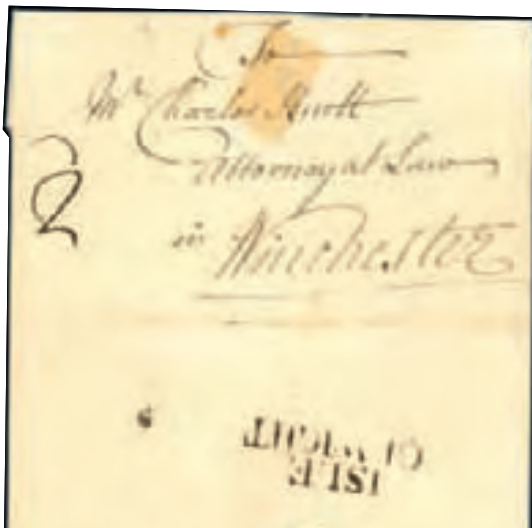 To
Mr Charles Knott
Attorney at Law
in Winchester
2
ISLE
OF WIGHT